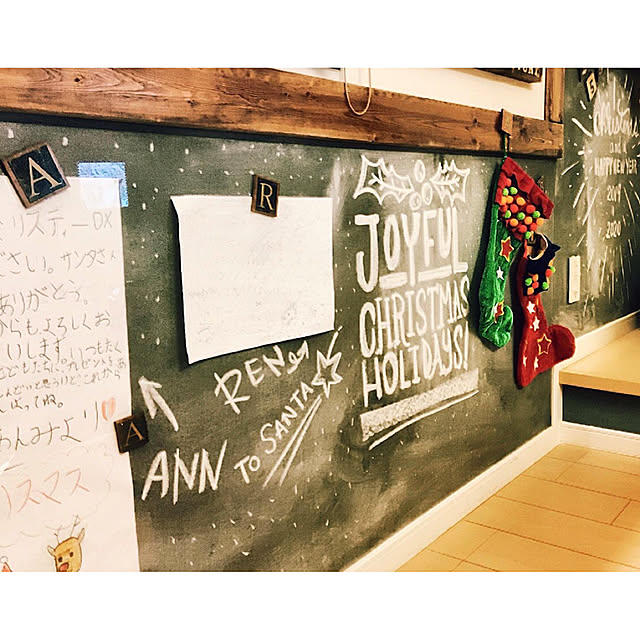 A
リスティーDX
ださい。サンタさん
ありがとう。
からもよろしくお
いします。いつもたく
ばってね。
あんみより♡
リスマス
A
R
REN
ANN TO SANTA
JOYFUL
CHRISTMAS
HOLIDAYS!
Christmas
and a
HAPPY NEW YEAR
2019
2020